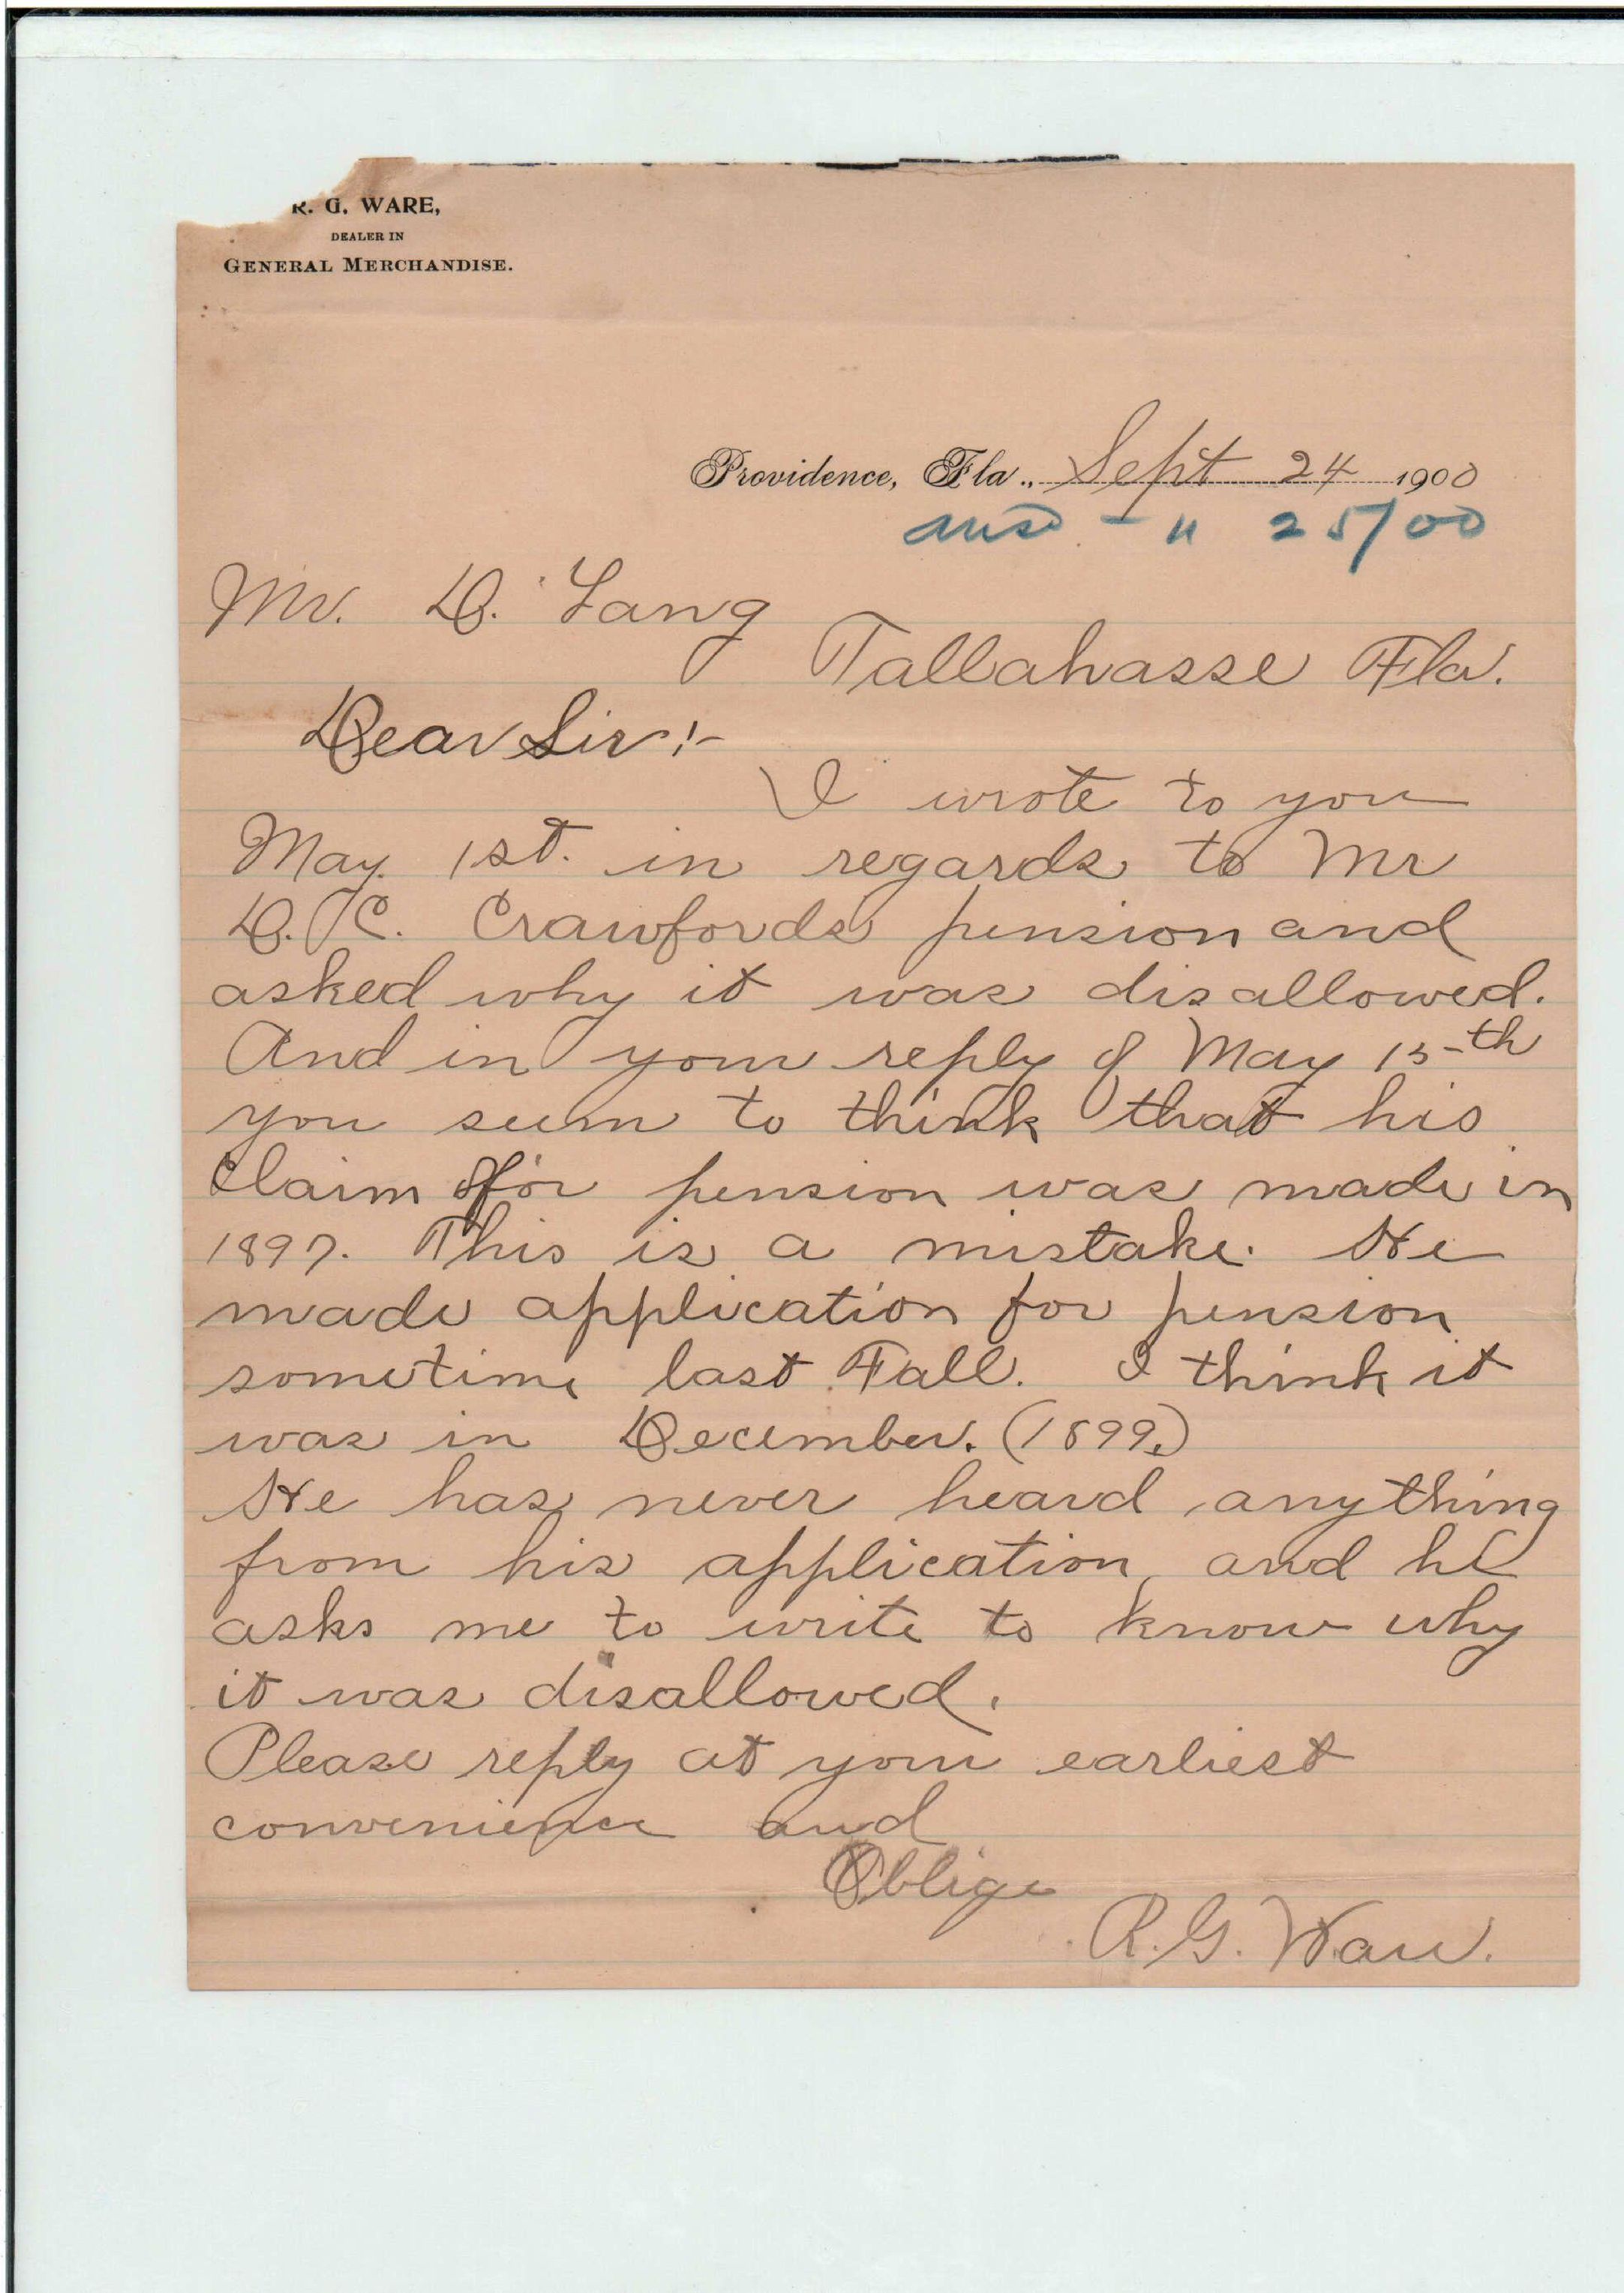 R. G. WARE,
DEALER IN
GENERAL MERCHANDISE.
Providence, Fla., Sept 24 1900
ansd - " 25/00
Mr. D. Lang
Tallahasse Fla.
Dear Sir:-
I wrote to you
May 1st. in regards to Mr
D. C. Crawfords pension and
asked why it was disallowed.
And in your reply of May 15th
you seem to think that his
Claim for pension was made in
1897. This is a mistake. He
made application for pension
sometime last Fall. I think it
was in December. (1899.)
He has never heard anything
from his application, and he
asks me to write to know why
it was disallowed.
Please reply at your earliest
convenience and
Oblige
R. G. Ware.